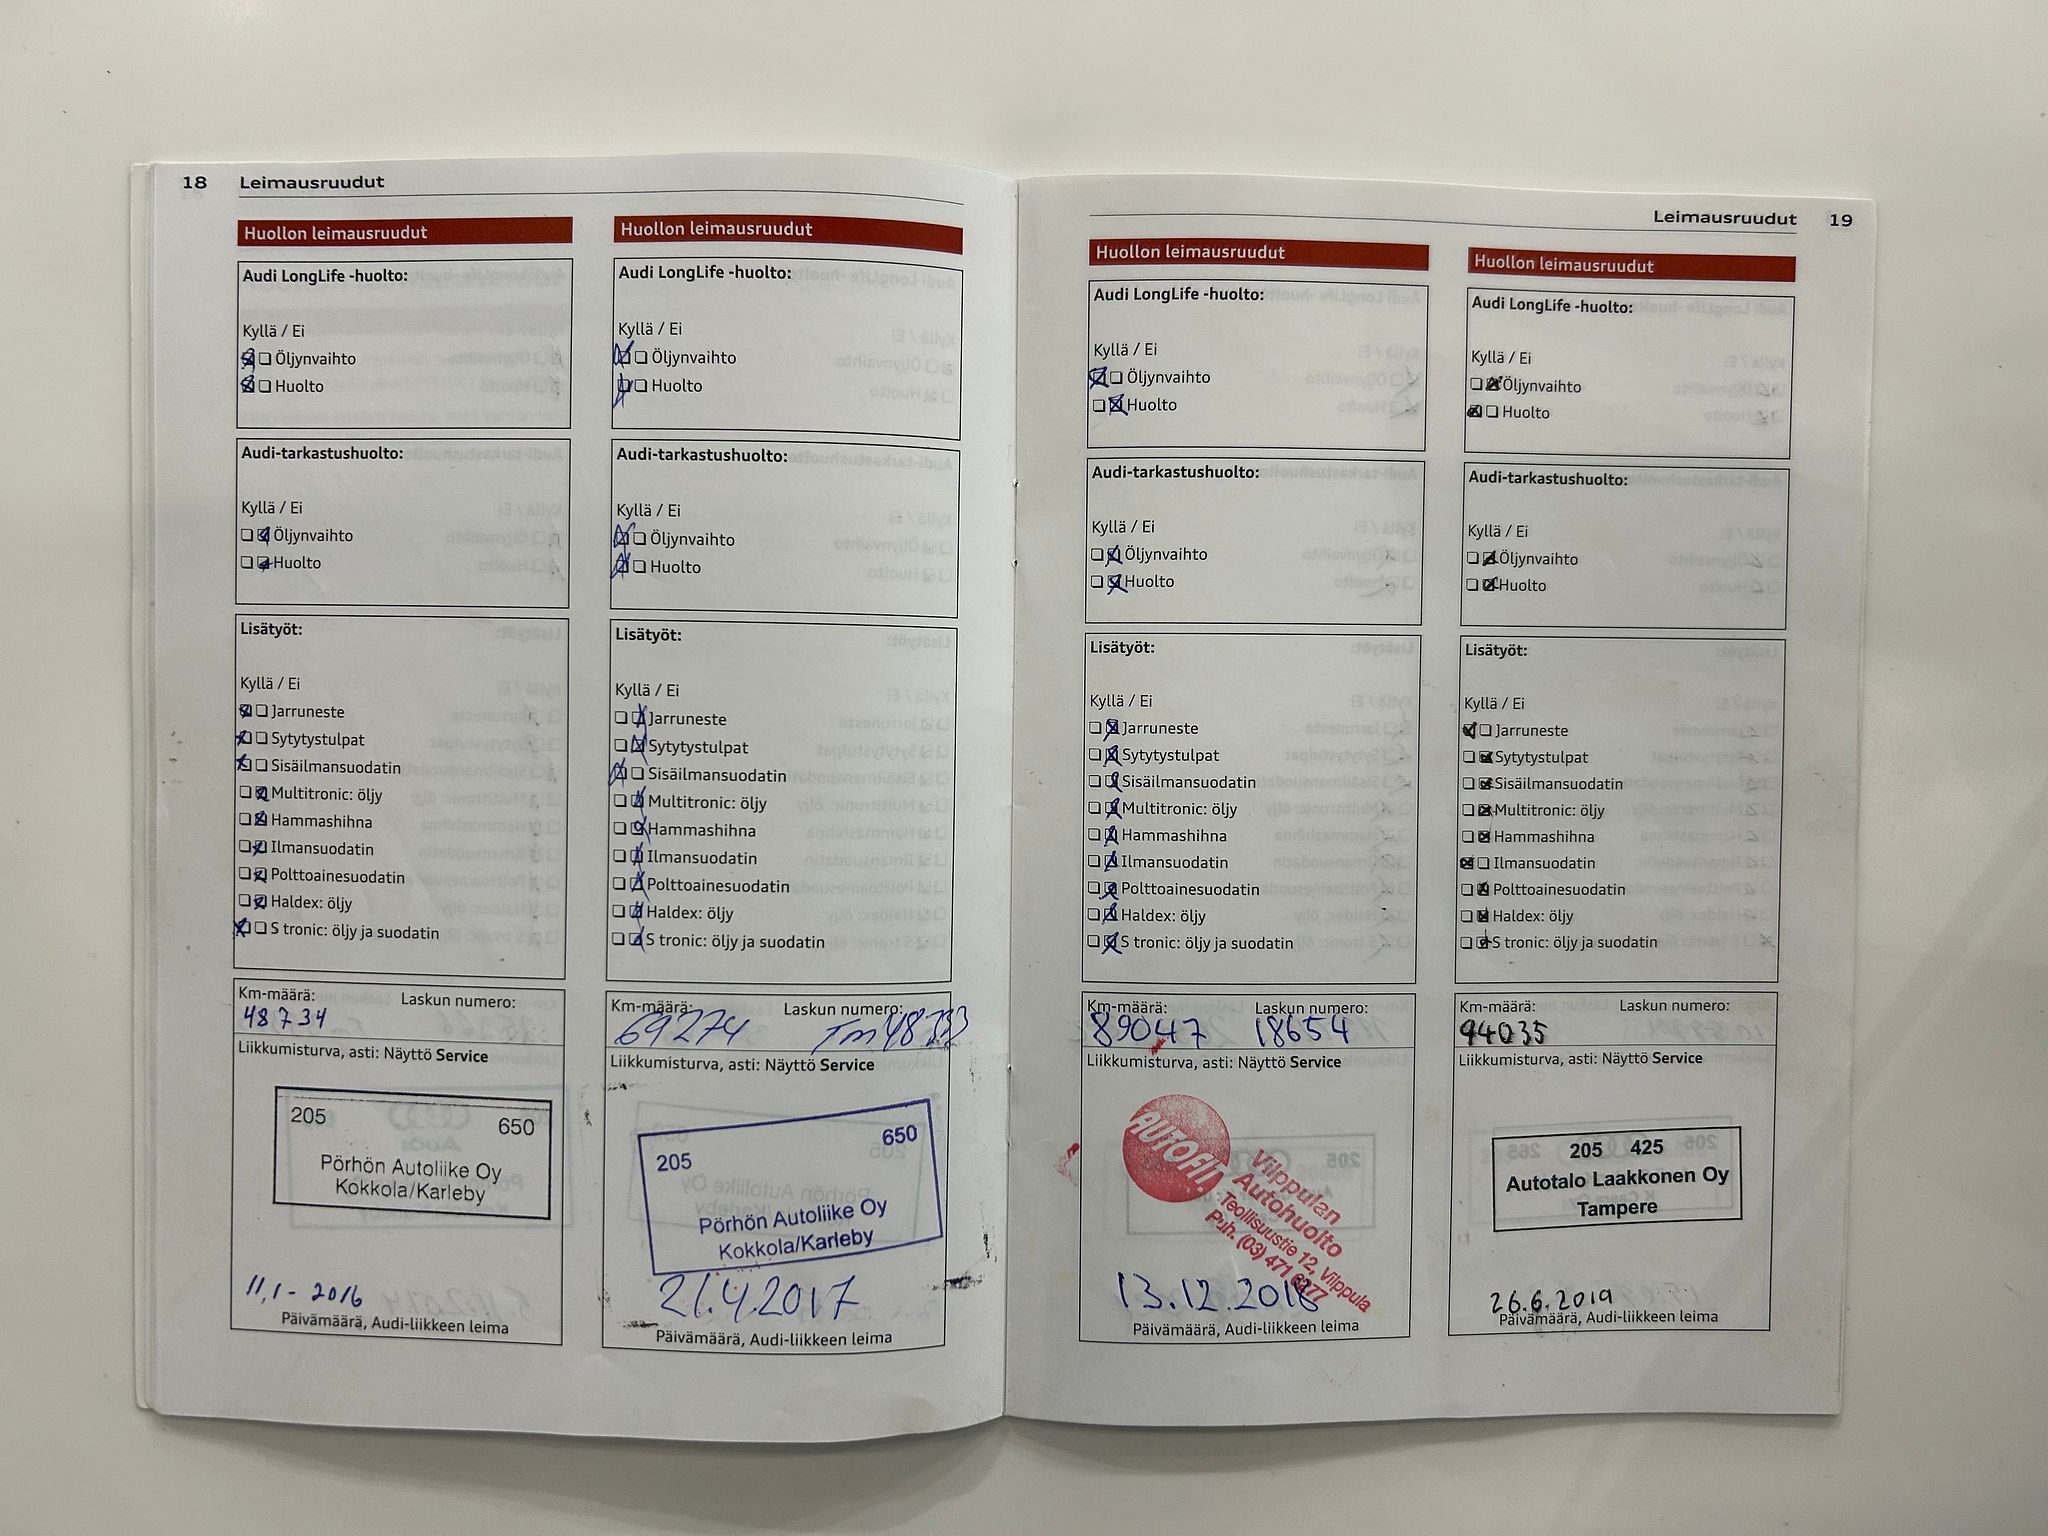 18 Leimausruudut
Huollon leimausruudut
Audi LongLife -huolto:
Kyllä / Ei
Öljynvaihto
Huolto
Audi-tarkastushuolto:
Kyllä / Ei
Öljynvaihto
Huolto
Lisätyöt:
Kyllä / Ei
Jarruneste
Sytytystulpat
Sisäilmansuodatin
Multitronic: öljy
Hammashihna
Ilmansuodatin
Polttoainesuodatin
Haldex: öljy
S tronic: öljy ja suodatin
Km-määrä: Laskun numero:
48734
Liikkumisturva, asti: Näyttö Service
205 650
Pörhön Autoliike Oy
Kokkola/Karleby
11.1-2016
Päivämäärä, Audi-liikkeen leima
Huollon leimausruudut
Audi LongLife -huolto:
Kyllä / Ei
Öljynvaihto
Huolto
Audi-tarkastushuolto:
Kyllä / Ei
Öljynvaihto
Huolto
Lisätyöt:
Kyllä / Ei
Jarruneste
Sytytystulpat
Sisäilmansuodatin
Multitronic: öljy
Hammashihna
Ilmansuodatin
Polttoainesuodatin
Haldex: öljy
S tronic: öljy ja suodatin
Km-määrä: Laskun numero:
69274
Liikkumisturva, asti: Näyttö Service
205 650
Pörhön Autoliike Oy
Kokkola/Karleby
21.4.2017
Päivämäärä, Audi-liikkeen leima
Leimausruudut 19
Huollon leimausruudut
Audi LongLife -huolto:
Kyllä / Ei
Öljynvaihto
Huolto
Audi-tarkastushuolto:
Kyllä / Ei
Öljynvaihto
Huolto
Lisätyöt:
Kyllä / Ei
Jarruneste
Sytytystulpat
Sisäilmansuodatin
Multitronic: öljy
Hammashihna
Ilmansuodatin
Polttoainesuodatin
Haldex: öljy
S tronic: öljy ja suodatin
Km-määrä: Laskun numero:
89047 18654
Liikkumisturva, asti: Näyttö Service
AUTOfit
Vilppulan
Autohuolto
Teollisuustie 12, Vilppula
Puh. (03) 471 6377
13.12.2018
Päivämäärä, Audi-liikkeen leima
Huollon leimausruudut
Audi LongLife -huolto:
Kyllä / Ei
Öljynvaihto
Huolto
Audi-tarkastushuolto:
Kyllä / Ei
Öljynvaihto
Huolto
Lisätyöt:
Kyllä / Ei
Jarruneste
Sytytystulpat
Sisäilmansuodatin
Multitronic: öljy
Hammashihna
Ilmansuodatin
Polttoainesuodatin
Haldex: öljy
S tronic: öljy ja suodatin
Km-määrä: Laskun numero:
94035
Liikkumisturva, asti: Näyttö Service
205 425
Autotalo Laakkonen Oy
Tampere
26.6.2019
Päivämäärä, Audi-liikkeen leima